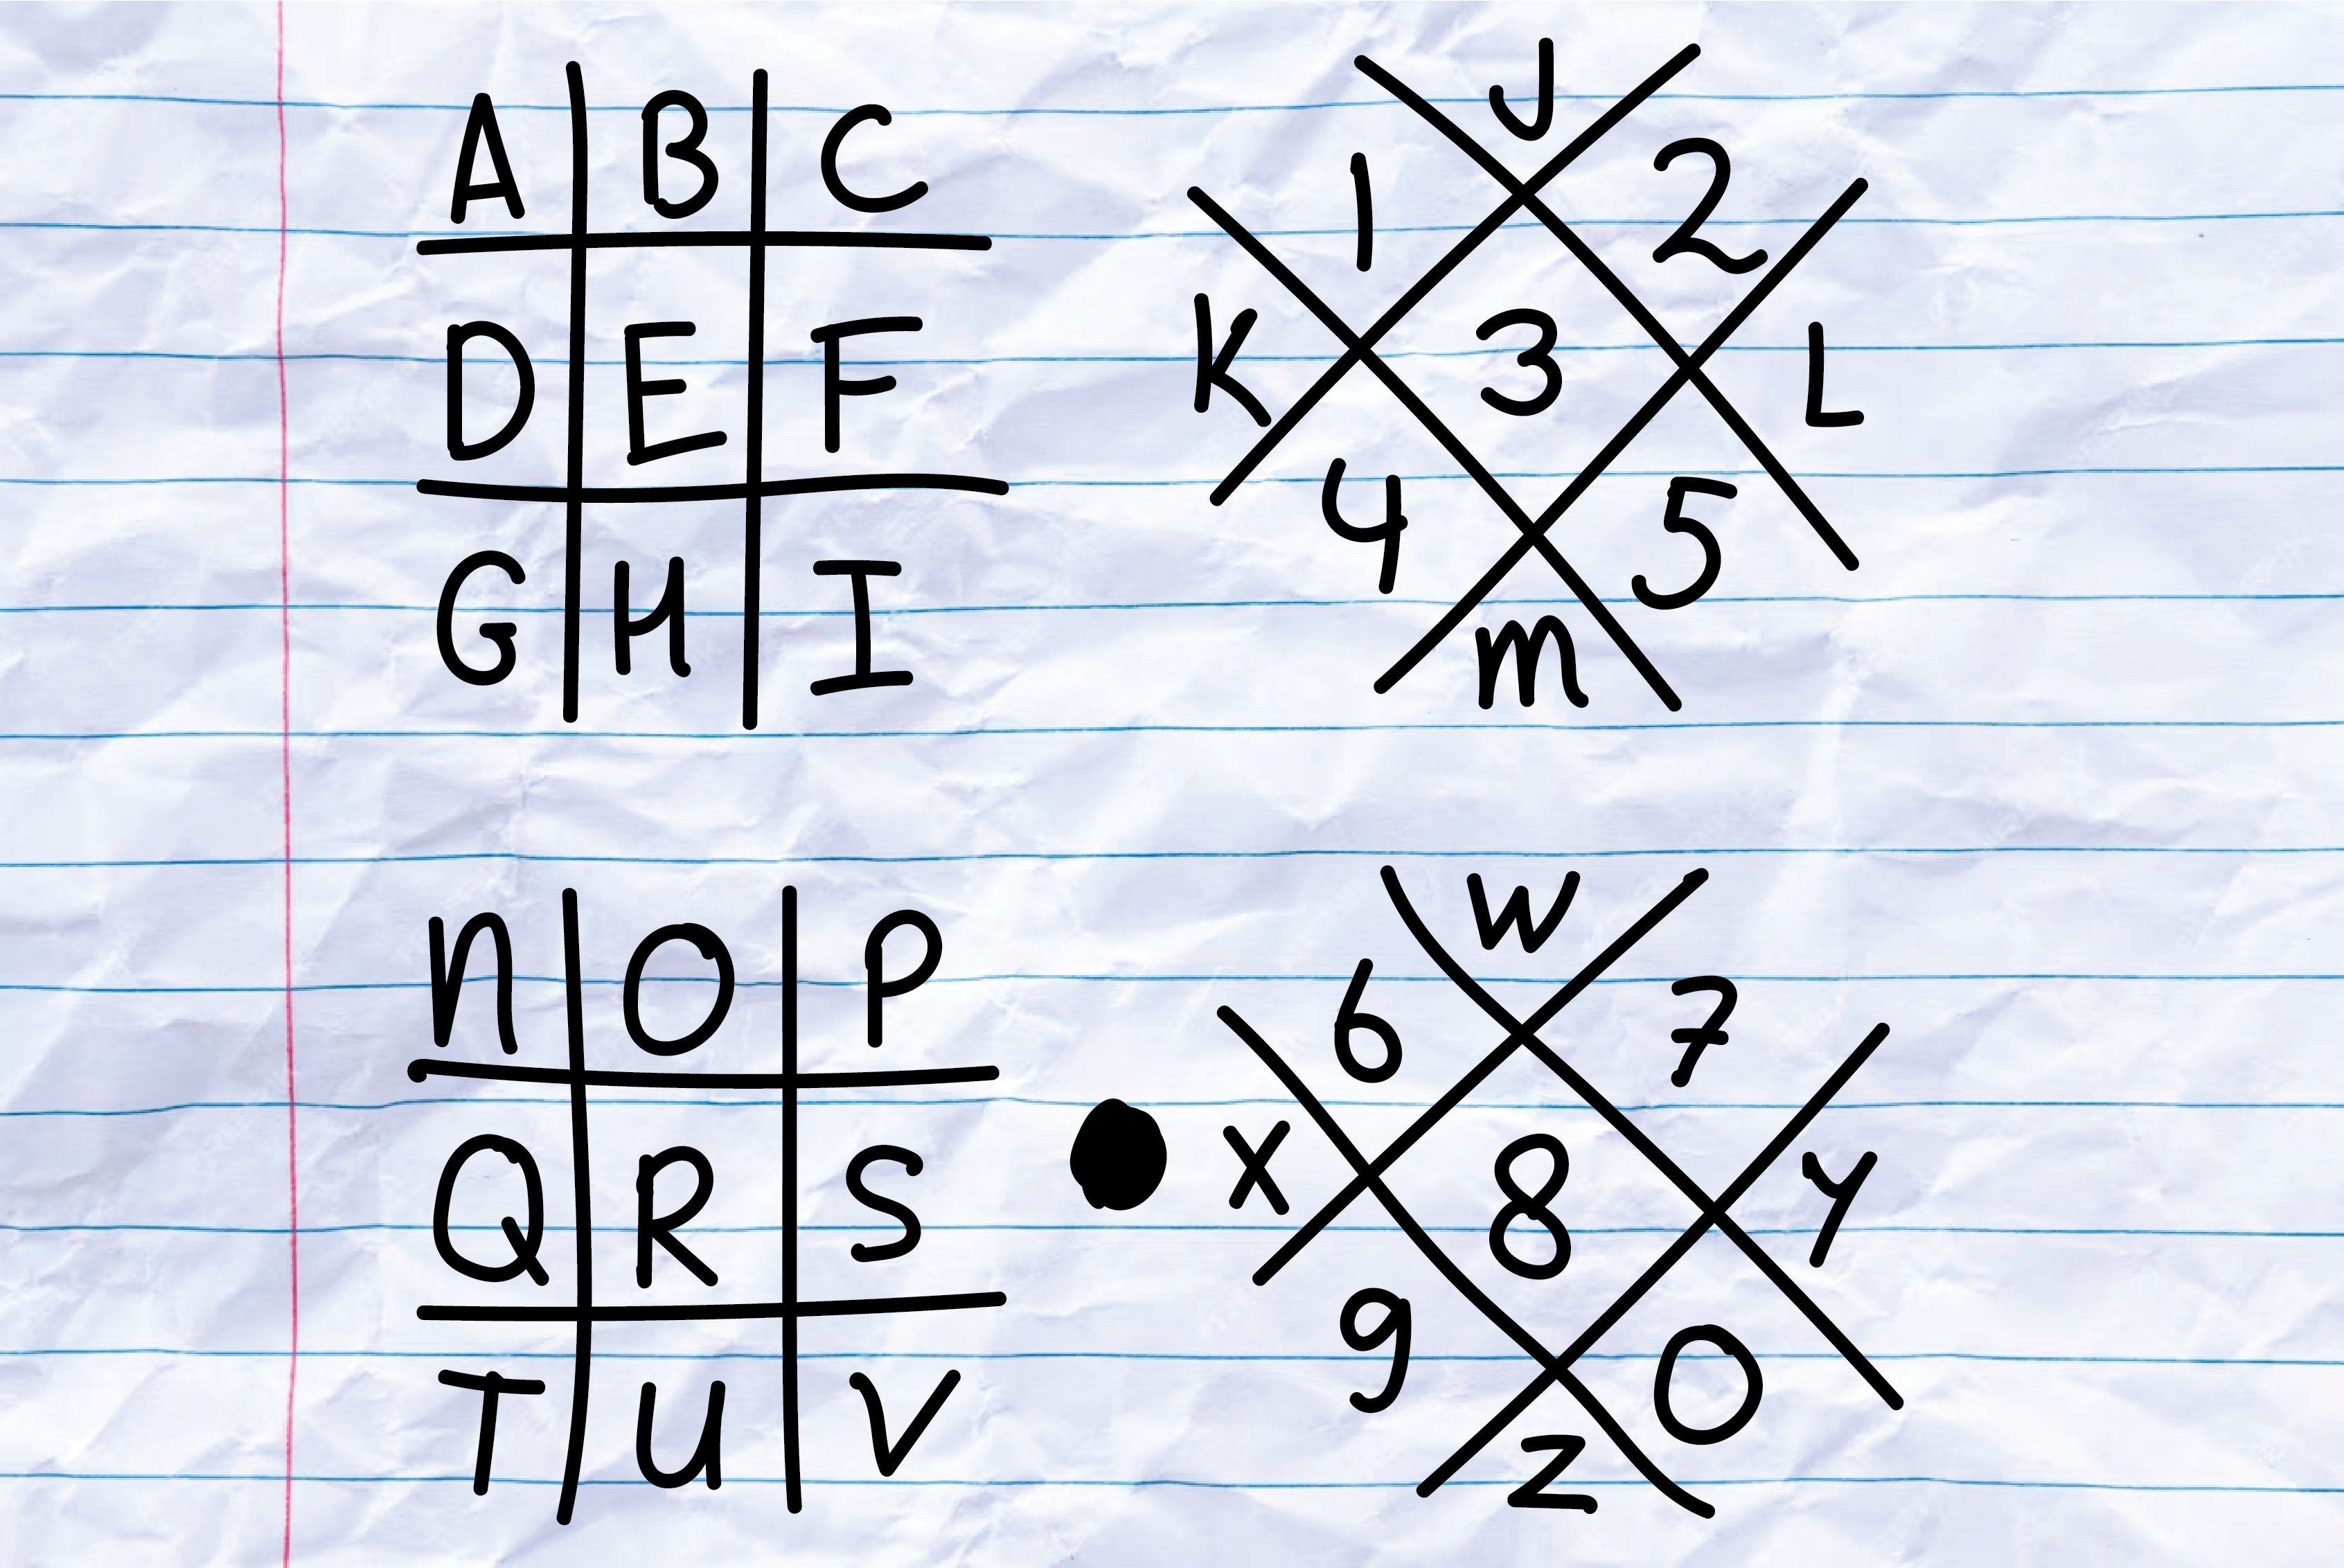 A B C
D E F
G H I
J
1 2
K 3 L
4 5
m
N O P
Q R S
T U V
W
6 7
X 8 Y
9 0
Z